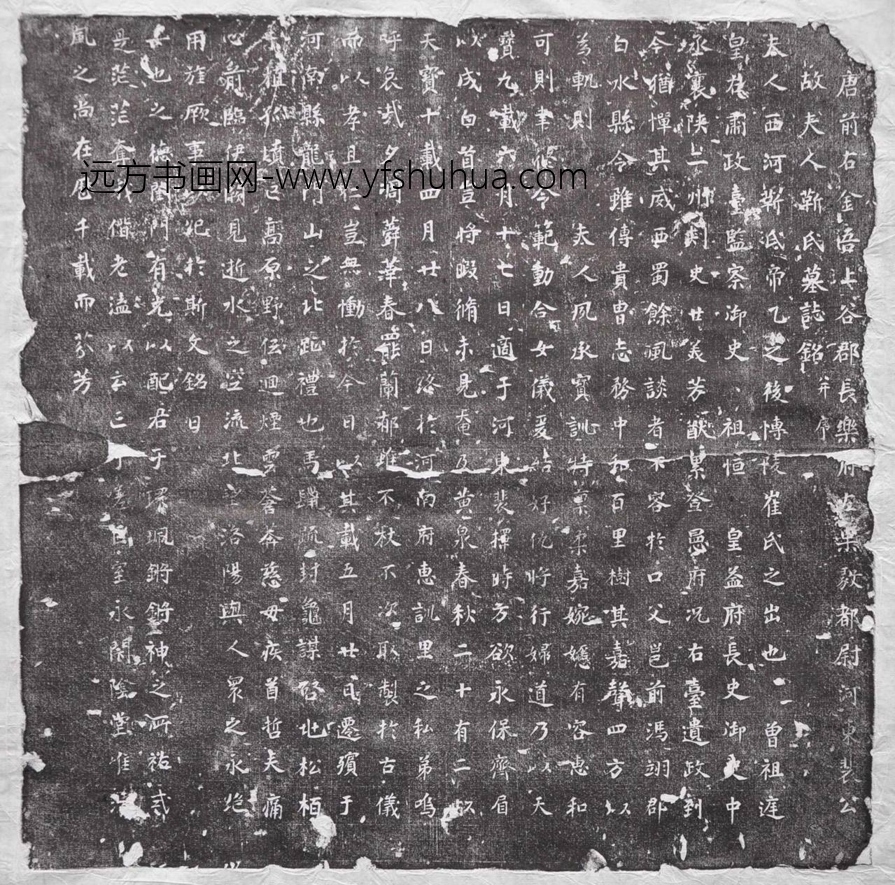 唐前右金吾上谷郡長樂府左果毅都尉河東裴公
故夫人靳氏墓誌銘 并序
夫人西河靳氏帝乙之後博陵崔氏之出也曾祖
皇右肅政臺監察御史祖恒 皇益府長史御史中
丞襄陝二州刺史 府況右臺遺政到
今猶憚其威西蜀餘風談者不容於口父 前馮翊郡
白水縣令雖傳貴胄志務中和百里樹其嘉聲四方以
為軌則 夫人夙承寶訓特稟柔嘉婉嫕有容惠和
可則聿脩令範動合女儀爰結好仇將行婦道乃以天
寶九載六月十七日適于河東裴擇時方欲永保齊眉
以成白首豈將暇脩未見奄及黃泉春秋二十有二以
天寶十載四月廿八日終於河南府惠訓里之私第嗚
呼哀哉 蘭郁雖不秋不次取製於古儀
而以孝且仁豈無慟於今日以其載五月廿 日遷殯于
河南縣龍門山之北趾禮也馬鬣疏封龜謀啓兆松栢
高原野 迴煙雲蒼莽慈母疾首哲夫痛
心前臨伊闕見逝水之空流北望洛陽與人眾之永
用旌厥事 紀於斯文銘曰
之德閨門有光以配君子環珮鏘鏘神之所祐
是茫茫 偕老溘以云亡 室永閟陰堂惟
風之尚在 千載而芬芳
远方书画网-www.yfshuhua.com